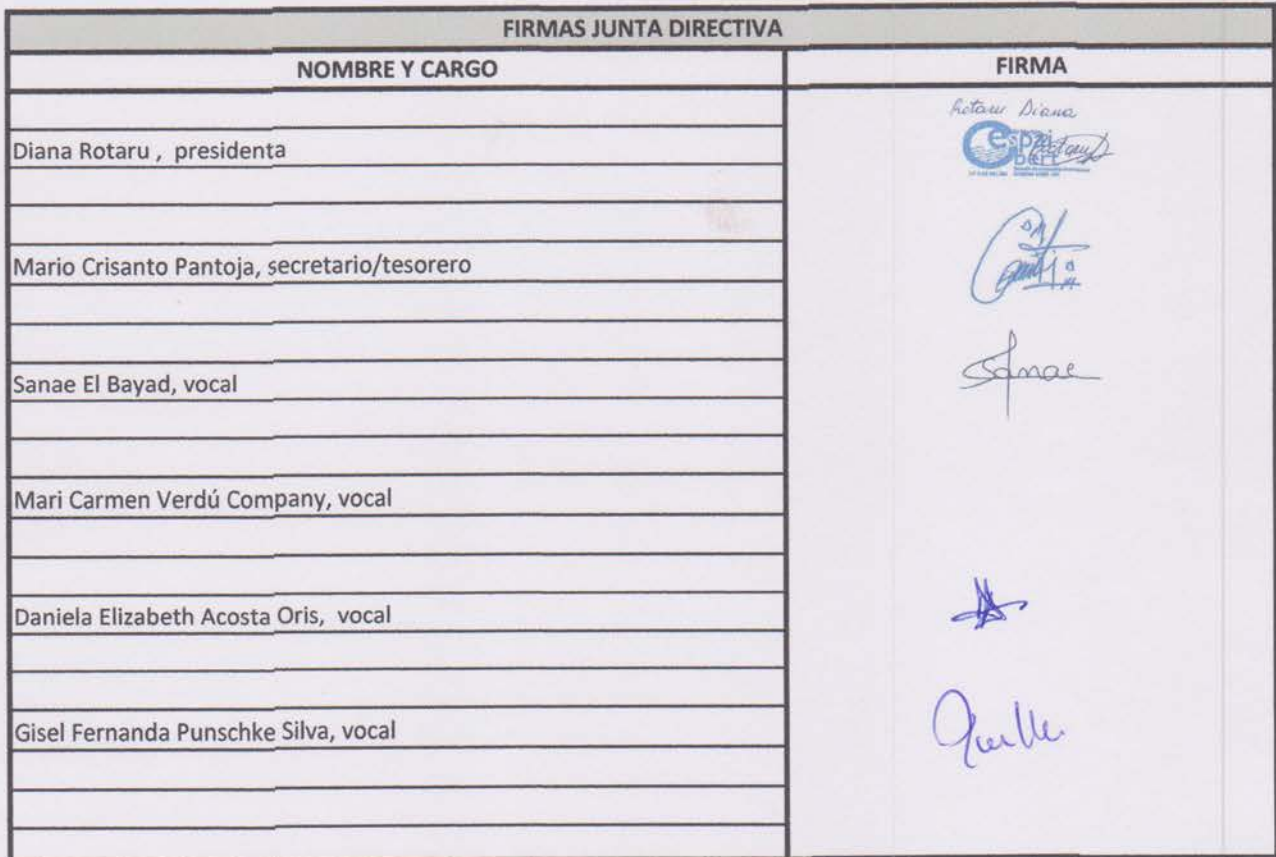 FIRMAS JUNTA DIRECTIVA
NOMBRE Y CARGO FIRMA
Rotaru Diana
Diana Rotaru , presidenta
espai obert
Mario Crisanto Pantoja, secretario/tesorero
Sanae El Bayad, vocal
Sanae
Mari Carmen Verdú Company, vocal
Daniela Elizabeth Acosta Oris, vocal
Gisel Fernanda Punschke Silva, vocal